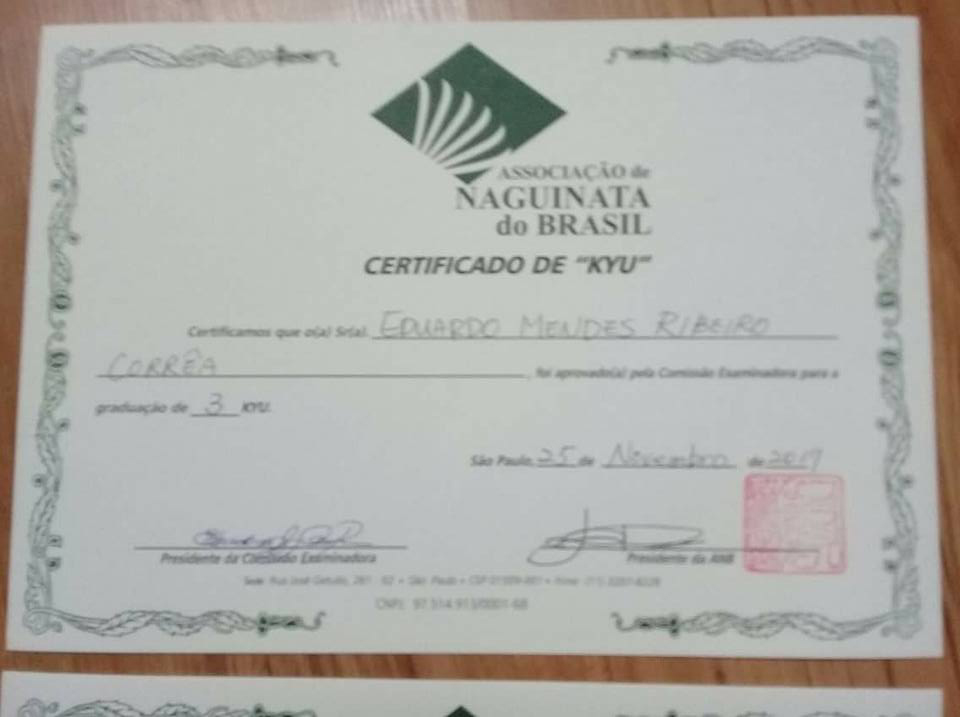 ASSOCIAÇÃO de
NAGUINATA
do BRASIL
CERTIFICADO DE "KYU"
Certificamos que o(a) Sr(a). EDUARDO MENDES RIBEIRO
CORRÊA, foi aprovado(a) pela Comissão Examinadora para a
graduação de 3 KYU.
São Paulo, 25 de Novembro de 2017
Presidente da Comissão Examinadora
Presidente da ANB
Sede: Rua José Getulio, São Paulo • CEP
CNPJ: